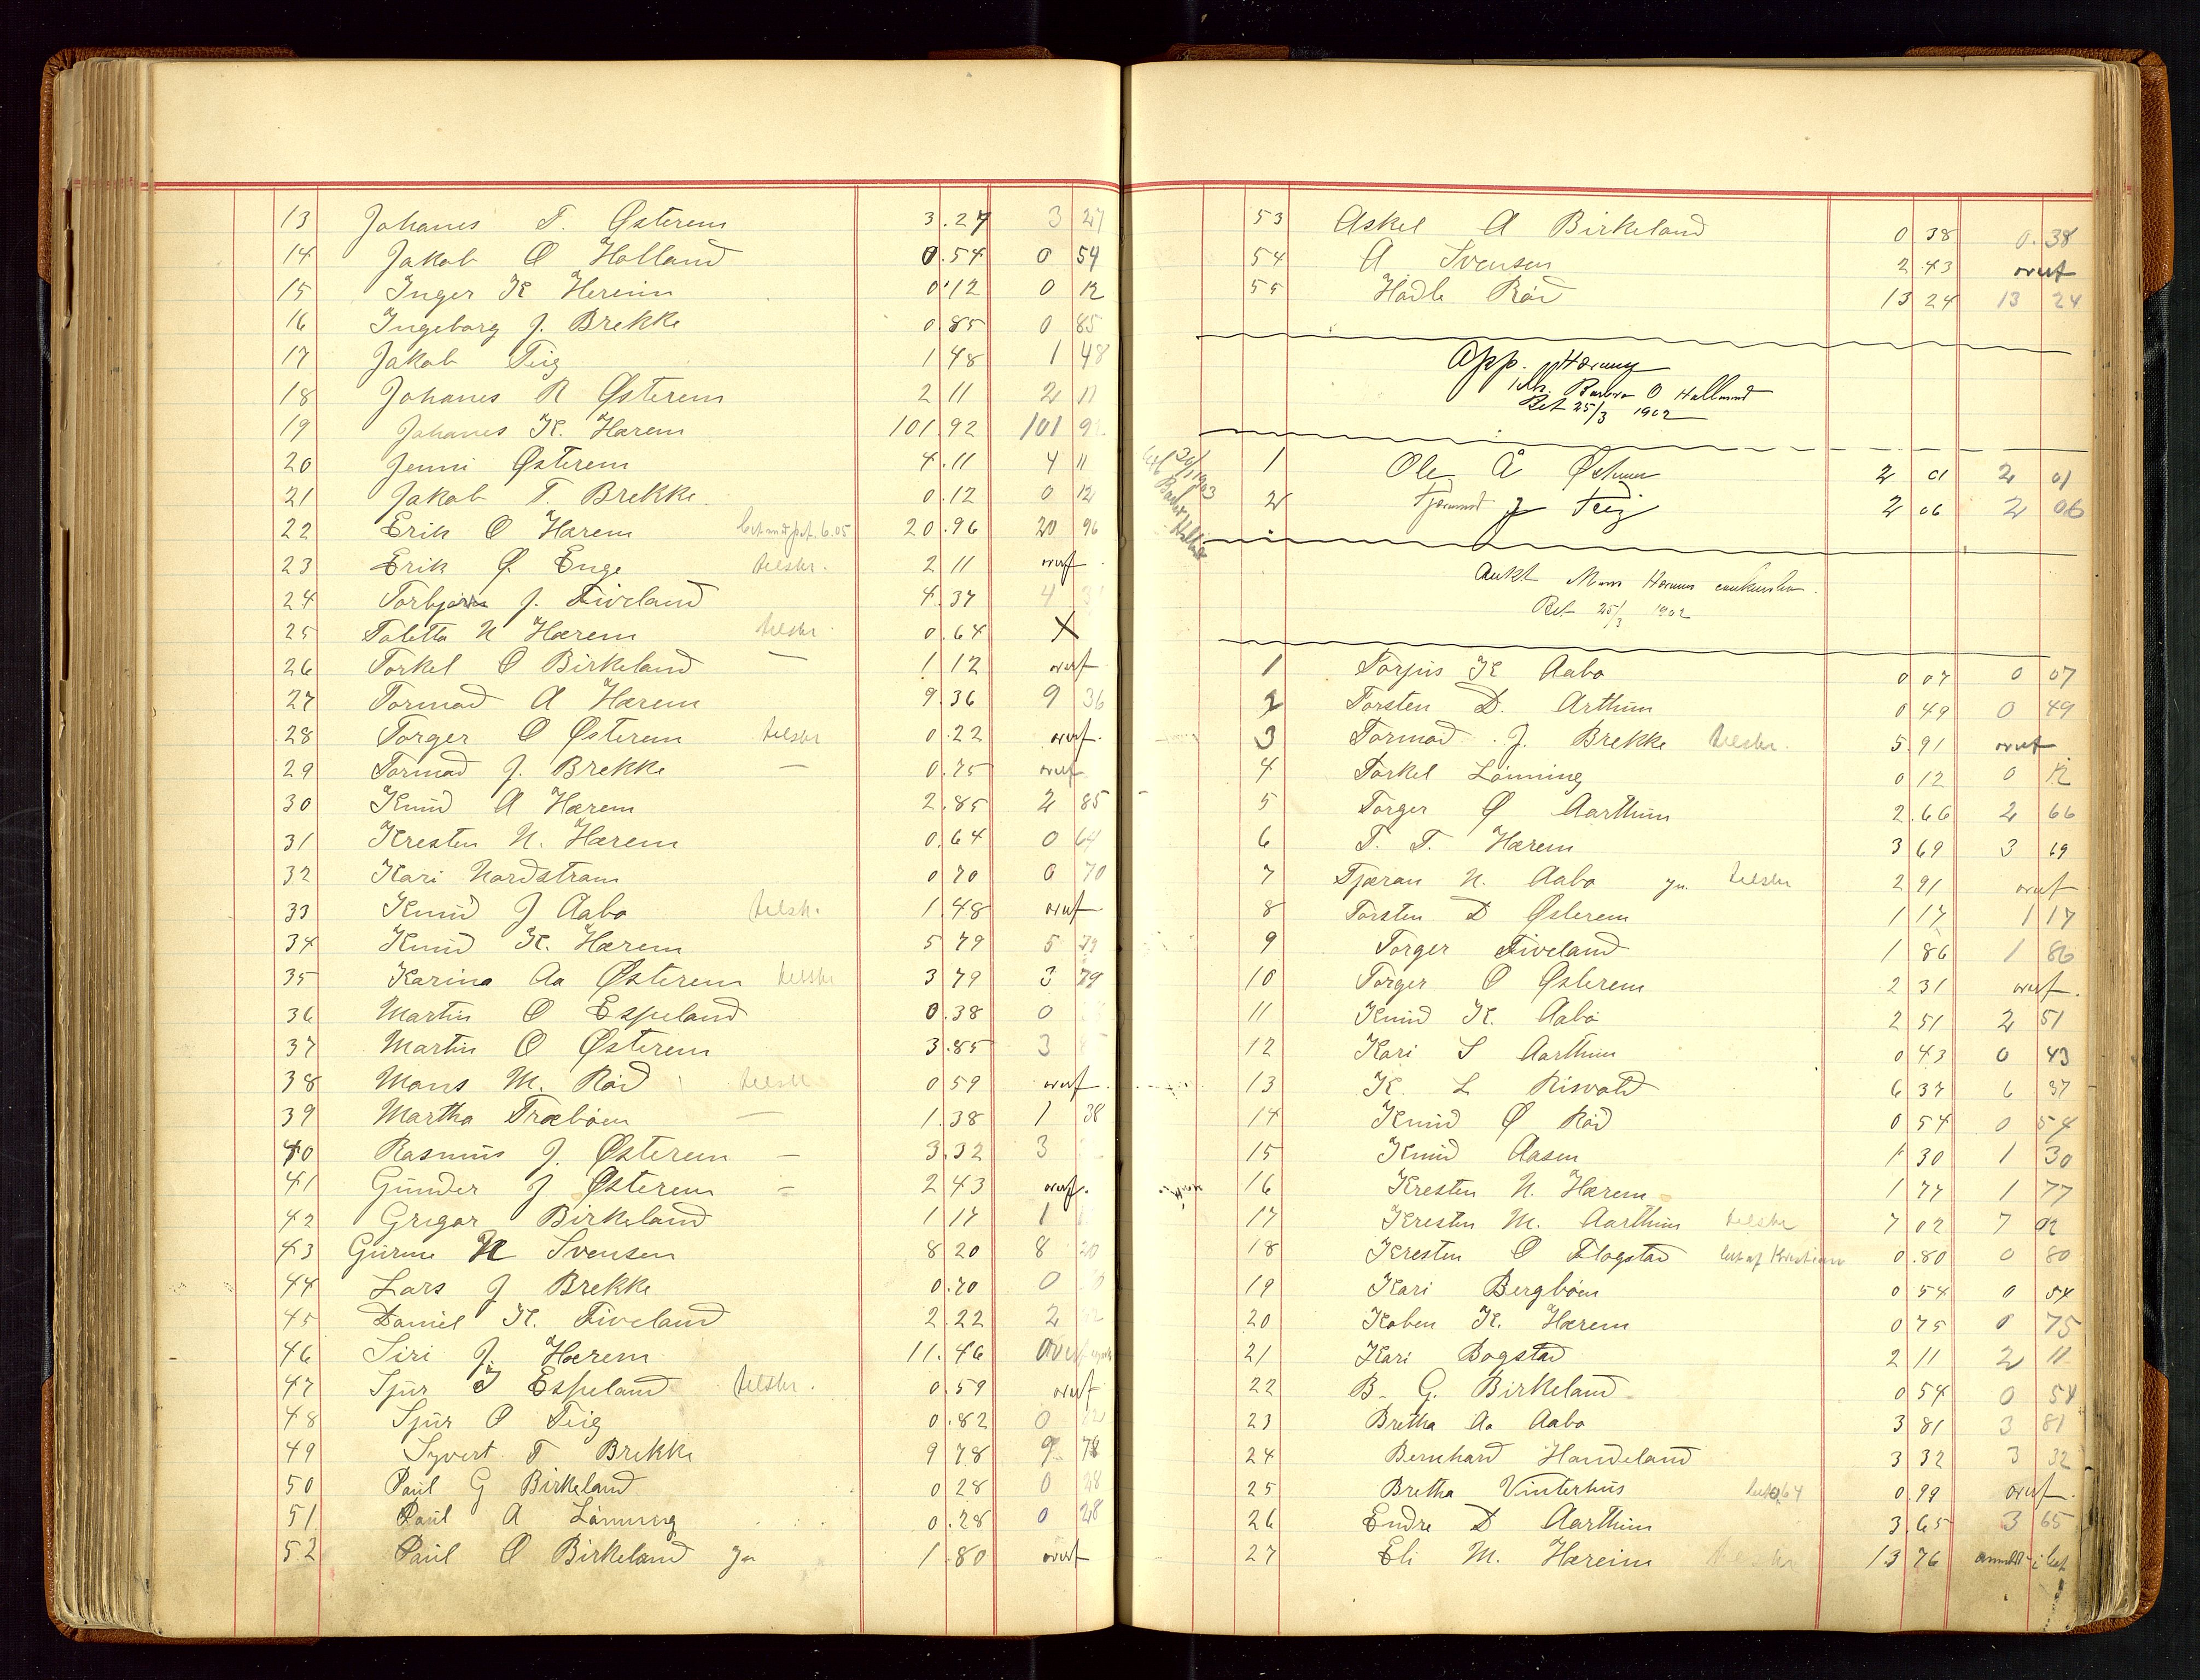 13 Johanes T. Østerem 3.27 3 27
14 Jakob O Holland 0.54 0 54
15 Inger K Hereim 0.12 0 12
16 Ingeborg J. Brekke 0.85 0 85
17 Jakob Teig 1 48 1 48
18 Johanes R Østerem 2 11 2 11
19 Johanes K. Hærem 101.92 101 92
20 Jenni Østerem 4.11 4 11
21 Jakob T. Brekke 0.12 0 12
22 Erik O Hærem 20.96 20 96
23 Erik Ø. Enge tilskr. 2 11 overf
24 Torbjørn J. Tiveland 4.37 4
25 Taletta N Hærem tilskr. 0.64 X
26 Torkel O Birkeland — 1 12 overf
27 Tormod A Hærem 9.36 9 36
28 Torger O Østerem tilskr 0.22 overf.
29 Tormod J. Brekke — 0.75 overf
30 Knud A Hærem 2.85 2 85
31 Kresten N. Hærem 0.64 0 64
32 Kari Nordstrøm 0 70 0 70
33 Knud J Aabø tilskr. 1.48 overf
34 Knud K. Hærem 5 79 5 79
35 Karina Aa Østerem tilskr 3 79 3 79
36 Martin O Espeland 0.38 0
37 Martin O Østerem 3.85 3
38 Mons M. Rød tilskr 0 59 overf.
39 Martha Træbøen — 1.38 1 38
40 Rasmus J. Østerem — 3.32 3
41 Gunder J Østerem — 2 43 overf.
42 Gregar Birkeland 1 17 1
43 Gurine N Svensen 8 20 8 20
44 Lars J Brekke 0.70 0
45 Daniel K. Tiveland 2.22 2
46 Siri J. Hærem 11.46 overf
47 Sjur J Espeland tilskr. 0.59 overf
48 Sjur O Teig 0.82 0
49 Syvert T Brekke 9 78 9 78
50 Paul G Birkeland 0 28 0 28
51 Paul A Lønning 0.28 0 28
52 Paul O Birkeland Jn 1.80 overf
53 Askel A Birkeland 0 38 0.38
54 A Svensen 2.43 overf
55 Hodle Rød 13 24 13 24
Opp. Hærem
Barbra O Halland
Bet 25/3 1902
1 Ole Å Østerem 2 01 2 01
2 J Teig 2 06 2 06
Aukt
Bet 25/3 1902
1 Torjus K Aabø 0 07 0 07
2 Torsten D. Arthun 0 49 0 49
3 Tormod J. Brekke tilskr. 5.91 overf
4 Torkel Lønning 0 12 0 12
5 Torger Ø Aarthun 2.66 2 66
6 T. T. Hærem 3 69 3 69
7 Tjæran N. Aabø jn. tilskr 2 91 overf
8 Torsten D Østerem 1 17 1 17
9 Torger Tiveland 1 86 1 86
10 Torger O Østerem 2 31 overf.
11 Knud K. Aabø 2 51 2 51
12 Kari S Aarthun 0 43 0 43
13 K. L Risvold 6 37 6 37
14 Knud Ø Rød 0 54 0 54
15 Knud Aasen 1 30 1 30
16 Kresten N. Hærem 1 77 1 77
17 Kresten M. Aarthun tilskr 7 02 7 02
18 Kresten O Flogstad 0.80 0 80
19 Kari Bergbøen 0 54 0 54
20 Koben K. Hærem 0 75 0 75
21 Kari Bogstad 2 11 2 11
22 B. G. Birkeland 0 54 0 54
23 Bretha Aa Aabø 3 81 3 81
24 Bernhard Handeland 3 32 3 32
25 Bretha Vinterhus 0.99 overf.
26 Endre D Aarthun 3.65 3 65
27 Eli M. Hæreim tilskr 13 76